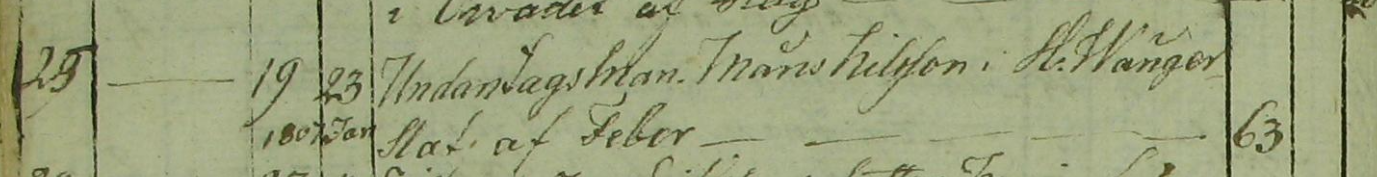 i af Slag
25 — 19 23 Undantags Man. Måns Nilsson i St. Wånger
1807 Jan Slat. af Feber — — — — — 63